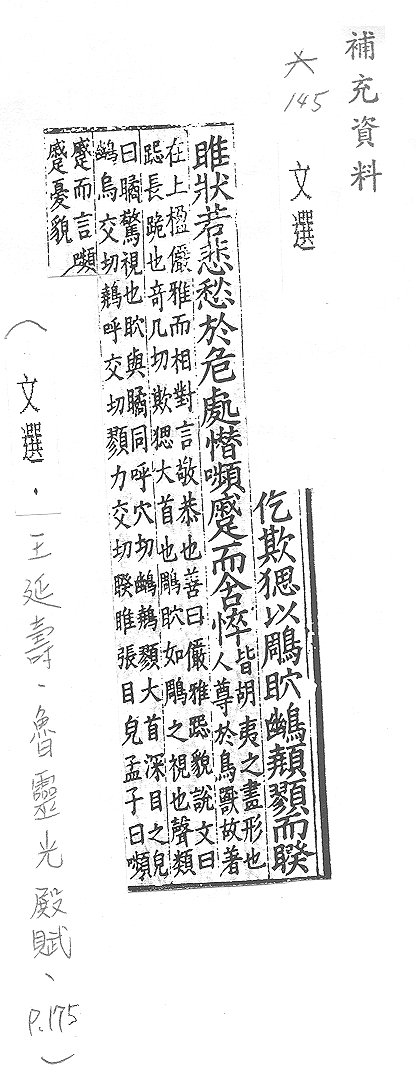 補充資料
145
文選
仡欺𤟧以鵰𥄎顤顟而睽
睢狀若悲愁於危處憯嚬蹙而含悴
皆胡夷之畫形也
人尊於鳥獸故著
在上楹儼雅而相對言敬恭也善曰儼雅跽貌說文曰
跽長跪也奇几切欺𤟧大首也鵰𥄎如鵰之視也聲類
曰瞲驚視也𥄎與瞲同呼穴切顤顟大首深目之皃
烏交切顤呼交切顟力交切睽睢張目皃孟子曰嚬
蹙而言嚬
蹙憂貌
（文選．王延壽、魯靈光殿賦、P.175）